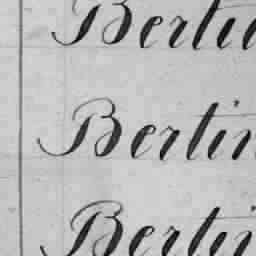 Berti
Bertin
Berti